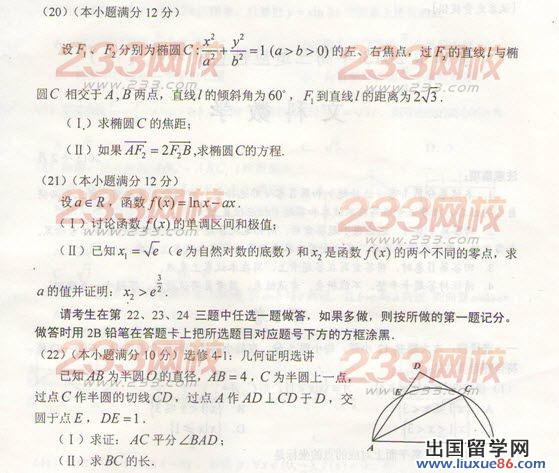 (20)（本小题满分 12 分）
设 F₁、F₂ 分别为椭圆 C: x²/a² + y²/b² = 1 (a > b > 0) 的左、右焦点，过 F₂ 的直线 l 与椭
圆 C 相交于 A, B 两点，直线 l 的倾斜角为 60°，F₁ 到直线 l 的距离为 2√3.
（Ⅰ）求椭圆 C 的焦距；
（Ⅱ）如果 AF₂ = 2F₂B, 求椭圆 C 的方程.
(21)（本小题满分 12 分）
设 a∈R，函数 f(x) = ln x − ax.
（Ⅰ）讨论函数 f(x) 的单调区间和极值；
（Ⅱ）已知 x₁ = √e（e 为自然对数的底数）和 x₂ 是函数 f(x) 的两个不同的零点，求
a 的值并证明：x₂ > e^(3/2).
请考生在第 22、23、24 三题中任选一题做答，如果多做，则按所做的第一题记分。
做答时用 2B 铅笔在答题卡上把所选题目对应题号下方的方框涂黑.
(22)（本小题满分 10 分）选修 4-1：几何证明选讲
已知 AB 为半圆 O 的直径，AB = 4，C 为半圆上一点，
过点 C 作半圆的切线 CD，过点 A 作 AD⊥CD 于 D，交
圆于点 E，DE = 1.
（Ⅰ）求证：AC 平分∠BAD；
（Ⅱ）求 BC 的长.
D
E
C
A
233网校
www.233.com
出国留学网
www.liuxue86.com